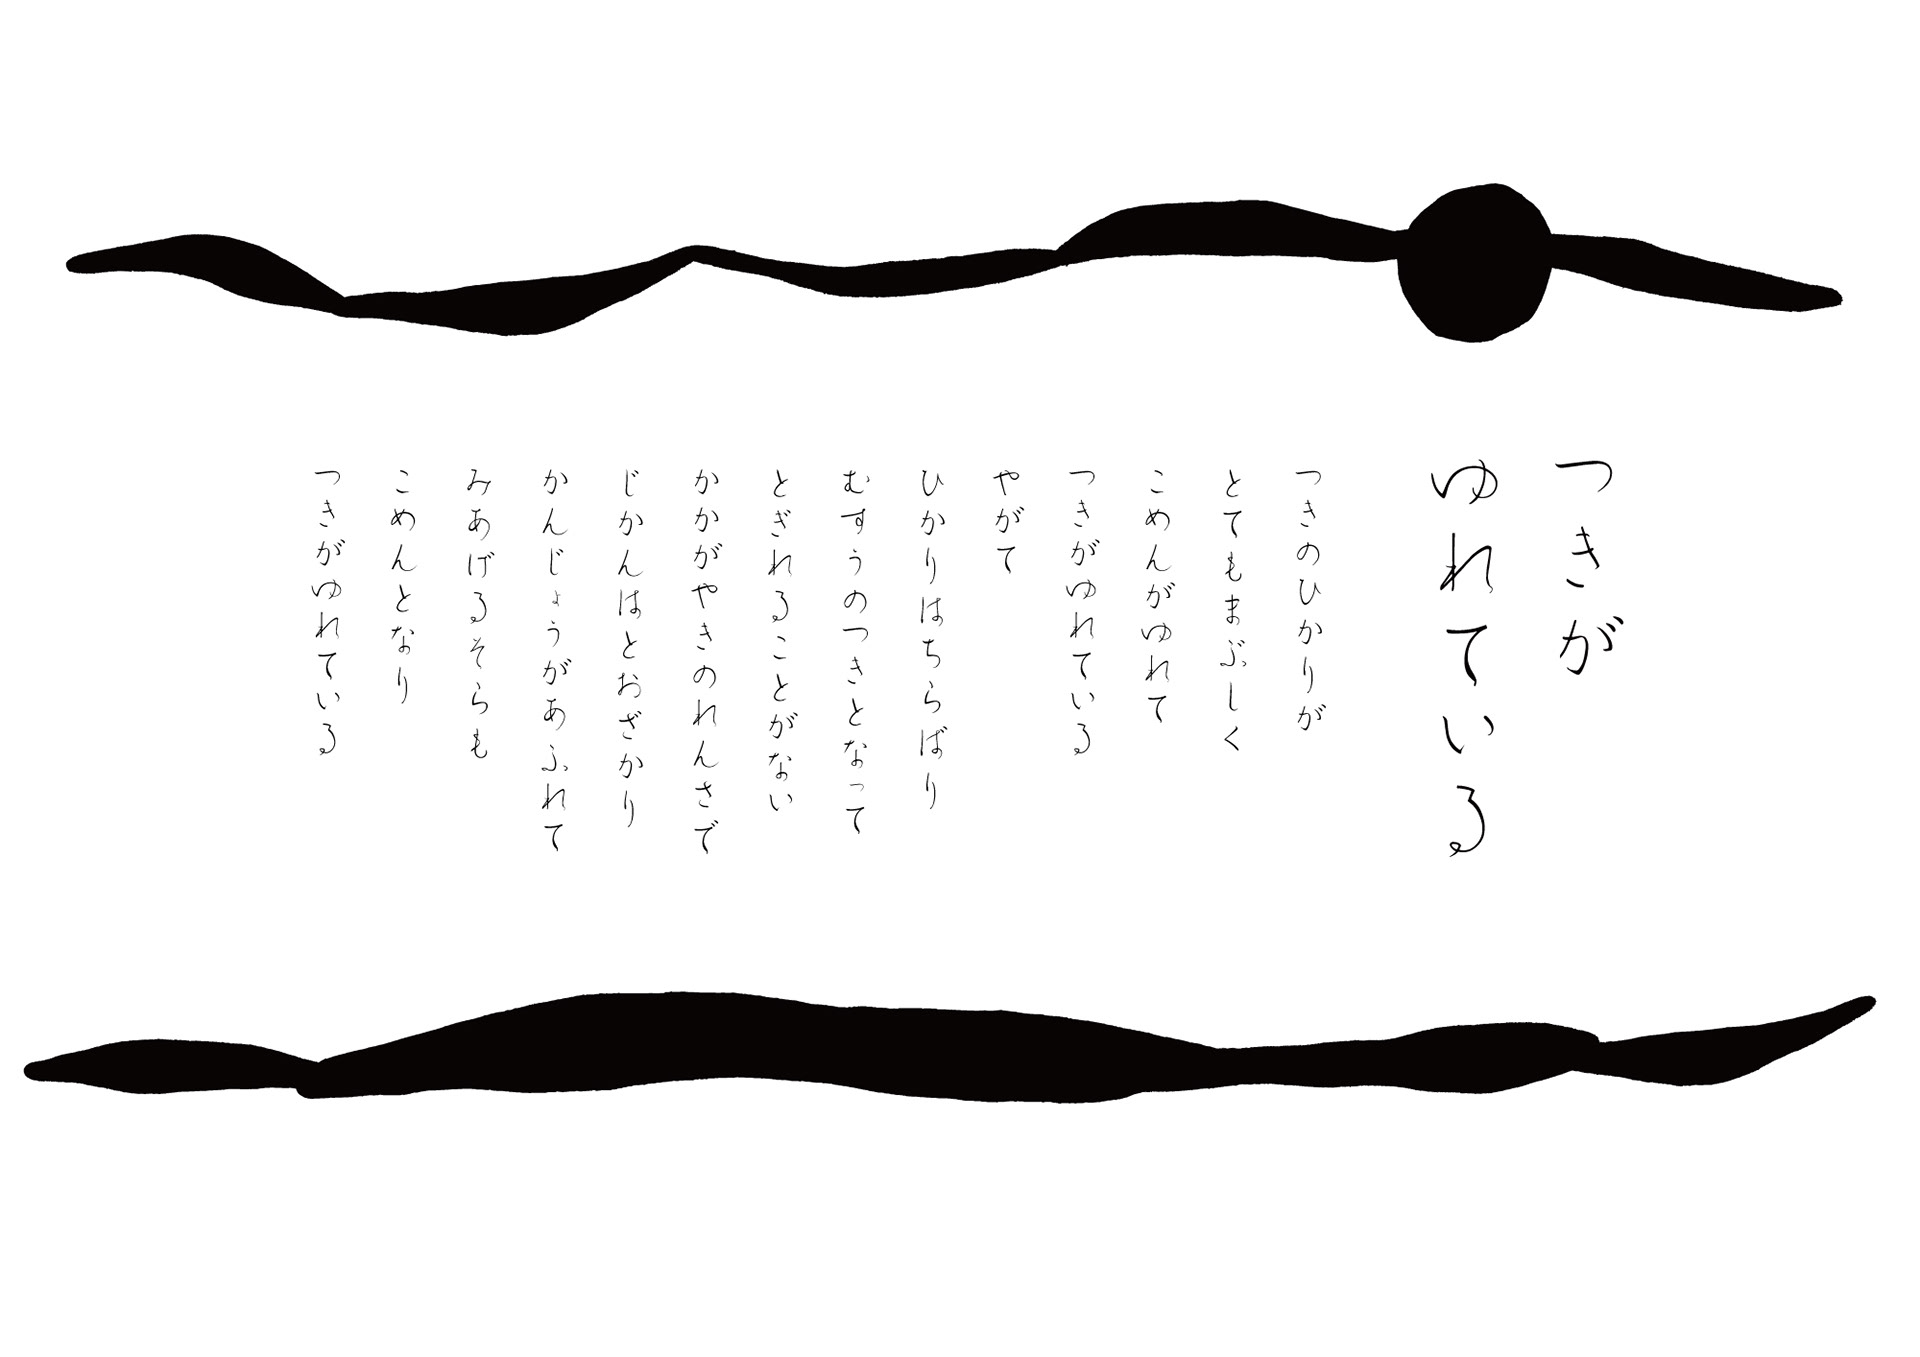 つきが
ゆれている
つきのひかりが
とてもまぶしく
こめんがゆれて
つきがゆれている
やがて
ひかりはちらばり
むすうのつきとなって
とぎれることがない
かかがやきのれんさで
じかんはとおざかり
かんじょうがあふれて
みあげるそらも
こめんとなり
つきがゆれている